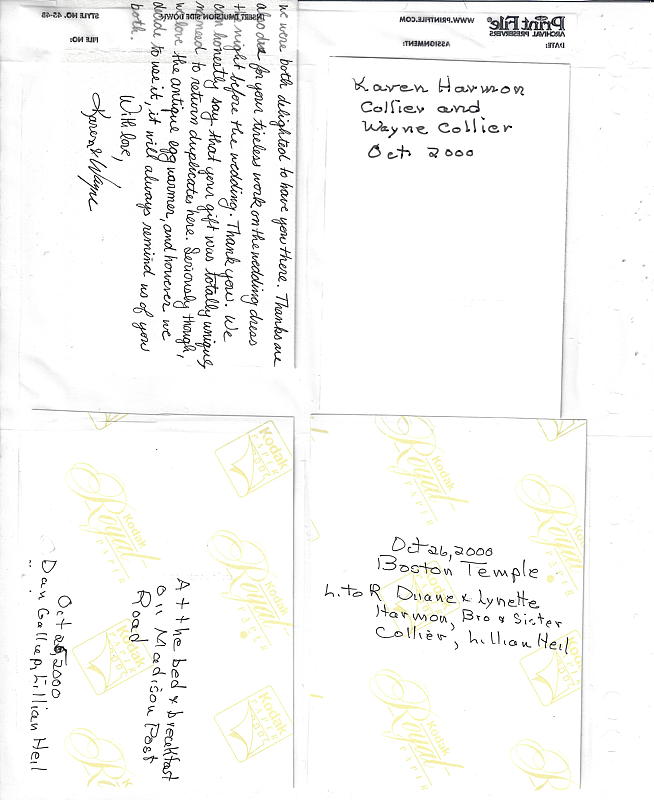 STYLE NO. 45-4B
INSERT EMULSION SIDE DOWN
WWW.PRINTFILE.COM
Print File
ARCHIVAL PRESERVERS
FILE NO:
ASSIGNMENT:
DATE:
we were both delighted to have you there. Thanks are
also due for your tireless work on the wedding dress
the night before the wedding. Thank you. We
can honestly say that your gift was totally unique,
no need to return duplicates here. Seriously though,
we love the antique egg warmer, and however we
decide to use it, it will always remind us of you
both.
With love,
Karen & Wayne
Karen Harmon
Collier and
Wayne Collier
Oct. 2000
At the bed & breakfast
on Madison Post
Road
Oct 26 2000
Dan Lillian Heil
Oct 26, 2000
Boston Temple
L. to R Duane & Lynette
Harmon, Bro & Sister
Collier, Lillian Heil
Kodak
Royal
PAPER
Kodak
PAPER
Kodak
Royal
PAPER
Kodak
PAPER